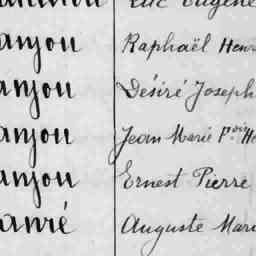 Luc Eugène
anjou Raphaël Henri
anjou Désiré Joseph
anjou Jean Marie Pᵒⁱˢ He
anjou Ernest Pierre
anré Auguste Mari